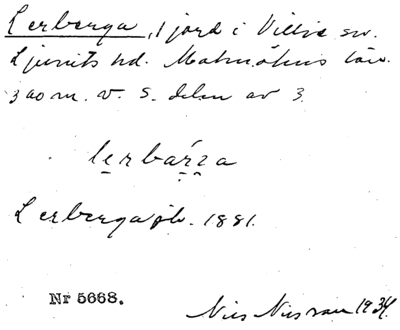 Lerberga, 1 jord i Villie sn.
Ljunits hd. Malmöhus län.
300 m. v. S. delen av 3
lerbarza
Lerberga jb. 1881.
Nr 5668.
Nils Nilsson 1934.